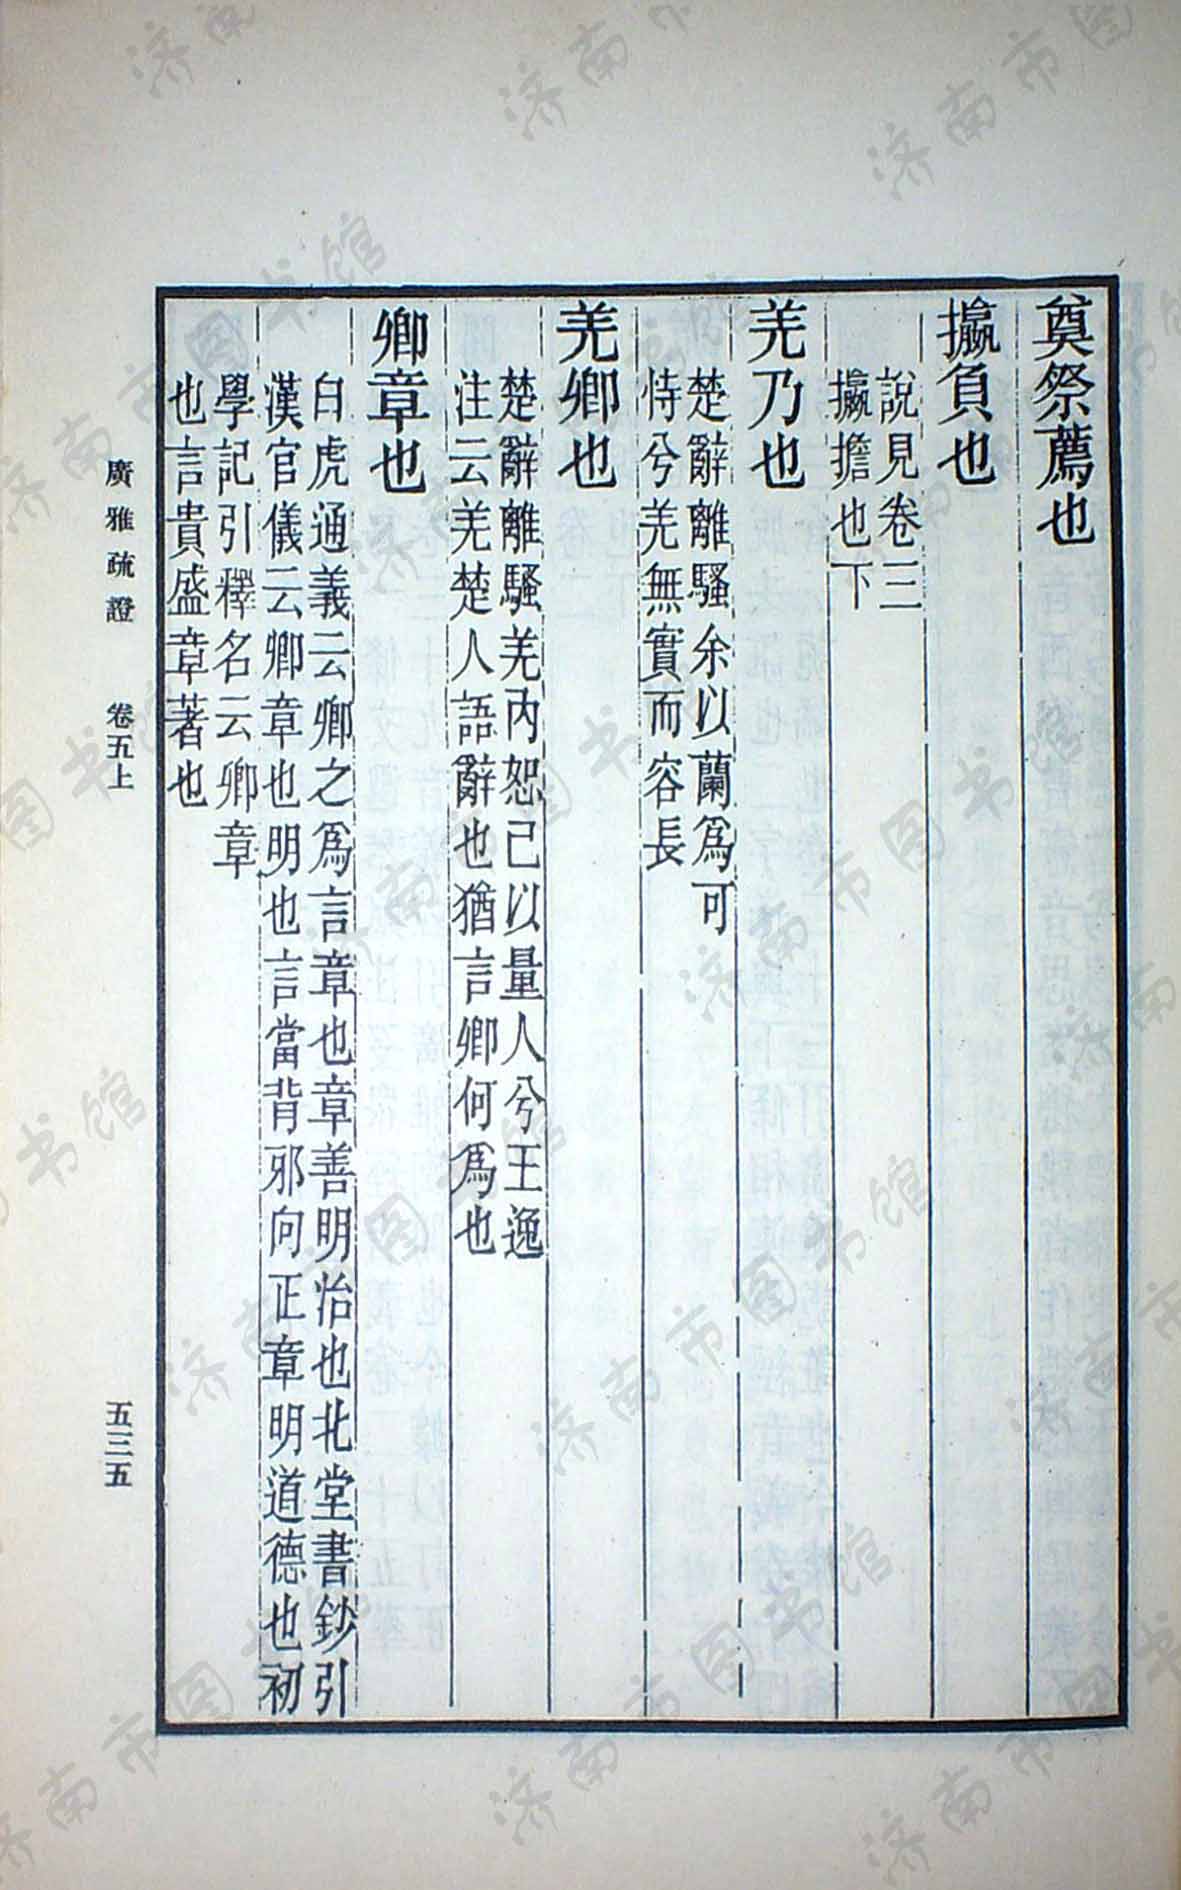 奠祭薦也
攍負也
說見卷三
攍擔也下
羌乃也
楚辭離騷余以蘭爲可
恃兮羌無實而容長
羌卿也
楚辭離騷羌內恕己以量人兮王逸
注云羌楚人語辭也猶言卿何爲也
卿章也
白虎通義云卿之爲言章也章善明治也北堂書鈔引
漢官儀云卿章也明也言當背邪向正章明道德也初
學記引釋名云卿章
也言貴盛章著也
廣雅疏證 卷五上 五三五
济南市图书馆